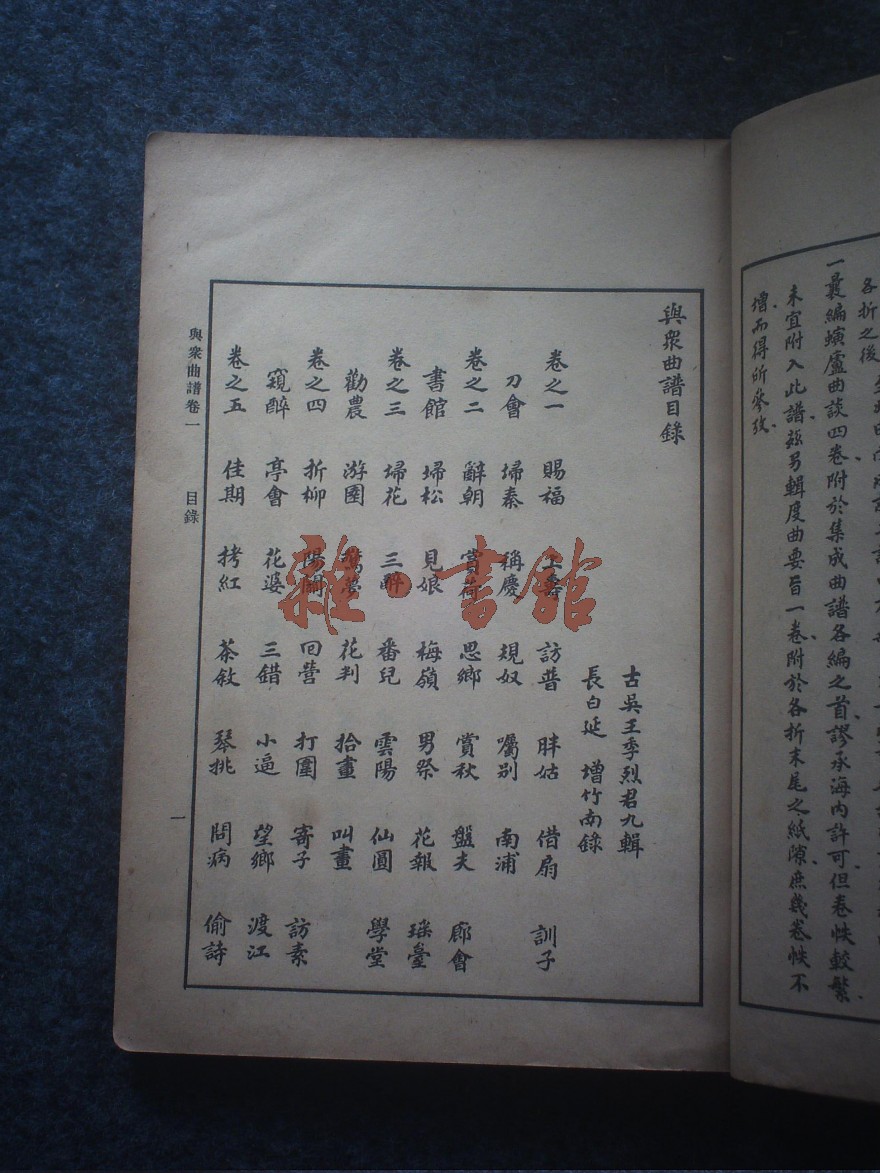 各折之後
一曩編螾廬曲談四卷附於集成曲譜各編之首謬承海內許可但卷帙較繁
未宜附入此譜茲另輯度曲要旨一卷附於各折末尾之紙隙庶幾卷帙不
增而得所參攷
與衆曲譜目錄
古吳王季烈君九輯
長白延 增竹南錄
卷之一 賜福 上壽 訪普 胖姑 借扇 訓子
刀會 埽秦 稱慶 規奴 囑別 南浦
卷之二 辭朝 賞荷 思鄉 賞秋 盤夫 廊會
書館 埽松 見娘 梅嶺 男祭 花報 瑤臺
卷之三 埽花 三醉 番兒 雲陽 仙圓 學堂
勸農 游園 驚夢 花判 拾畫 叫畫
卷之四 折柳 陽關 回營 打圍 寄子 訪素
窺醉 亭會 花婆 三錯 小逼 望鄉 渡江
卷之五 佳期 拷紅 茶敘 琴挑 問病 偷詩
與衆曲譜卷一 目錄 一
雜·書館